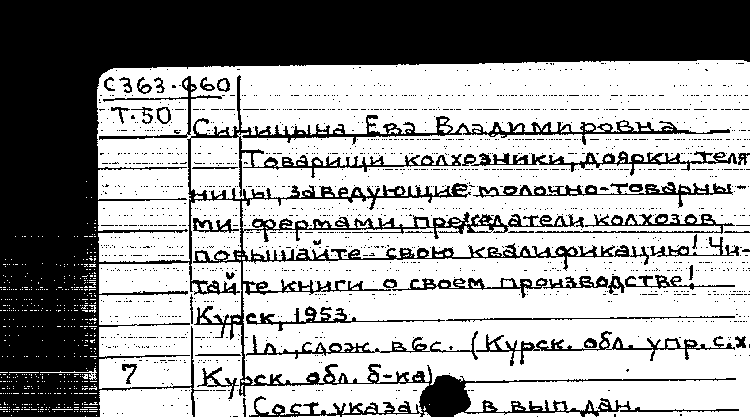 С363.660
Т.50
Синицына, Ева Владимировна
Товарищи колхозники, доярки, теля
ницы, заведующие молочно-товарны-
ми фермами, председатели колхозов,
повышайте свою квалификацию! Чи-
тайте книги о своем производстве!
Курск, 1953.
1л., слож. в 6с. (Курск. обл. упр. с.х.
7 Курск. обл. б-ка)
Сост. указа в вып. дан.